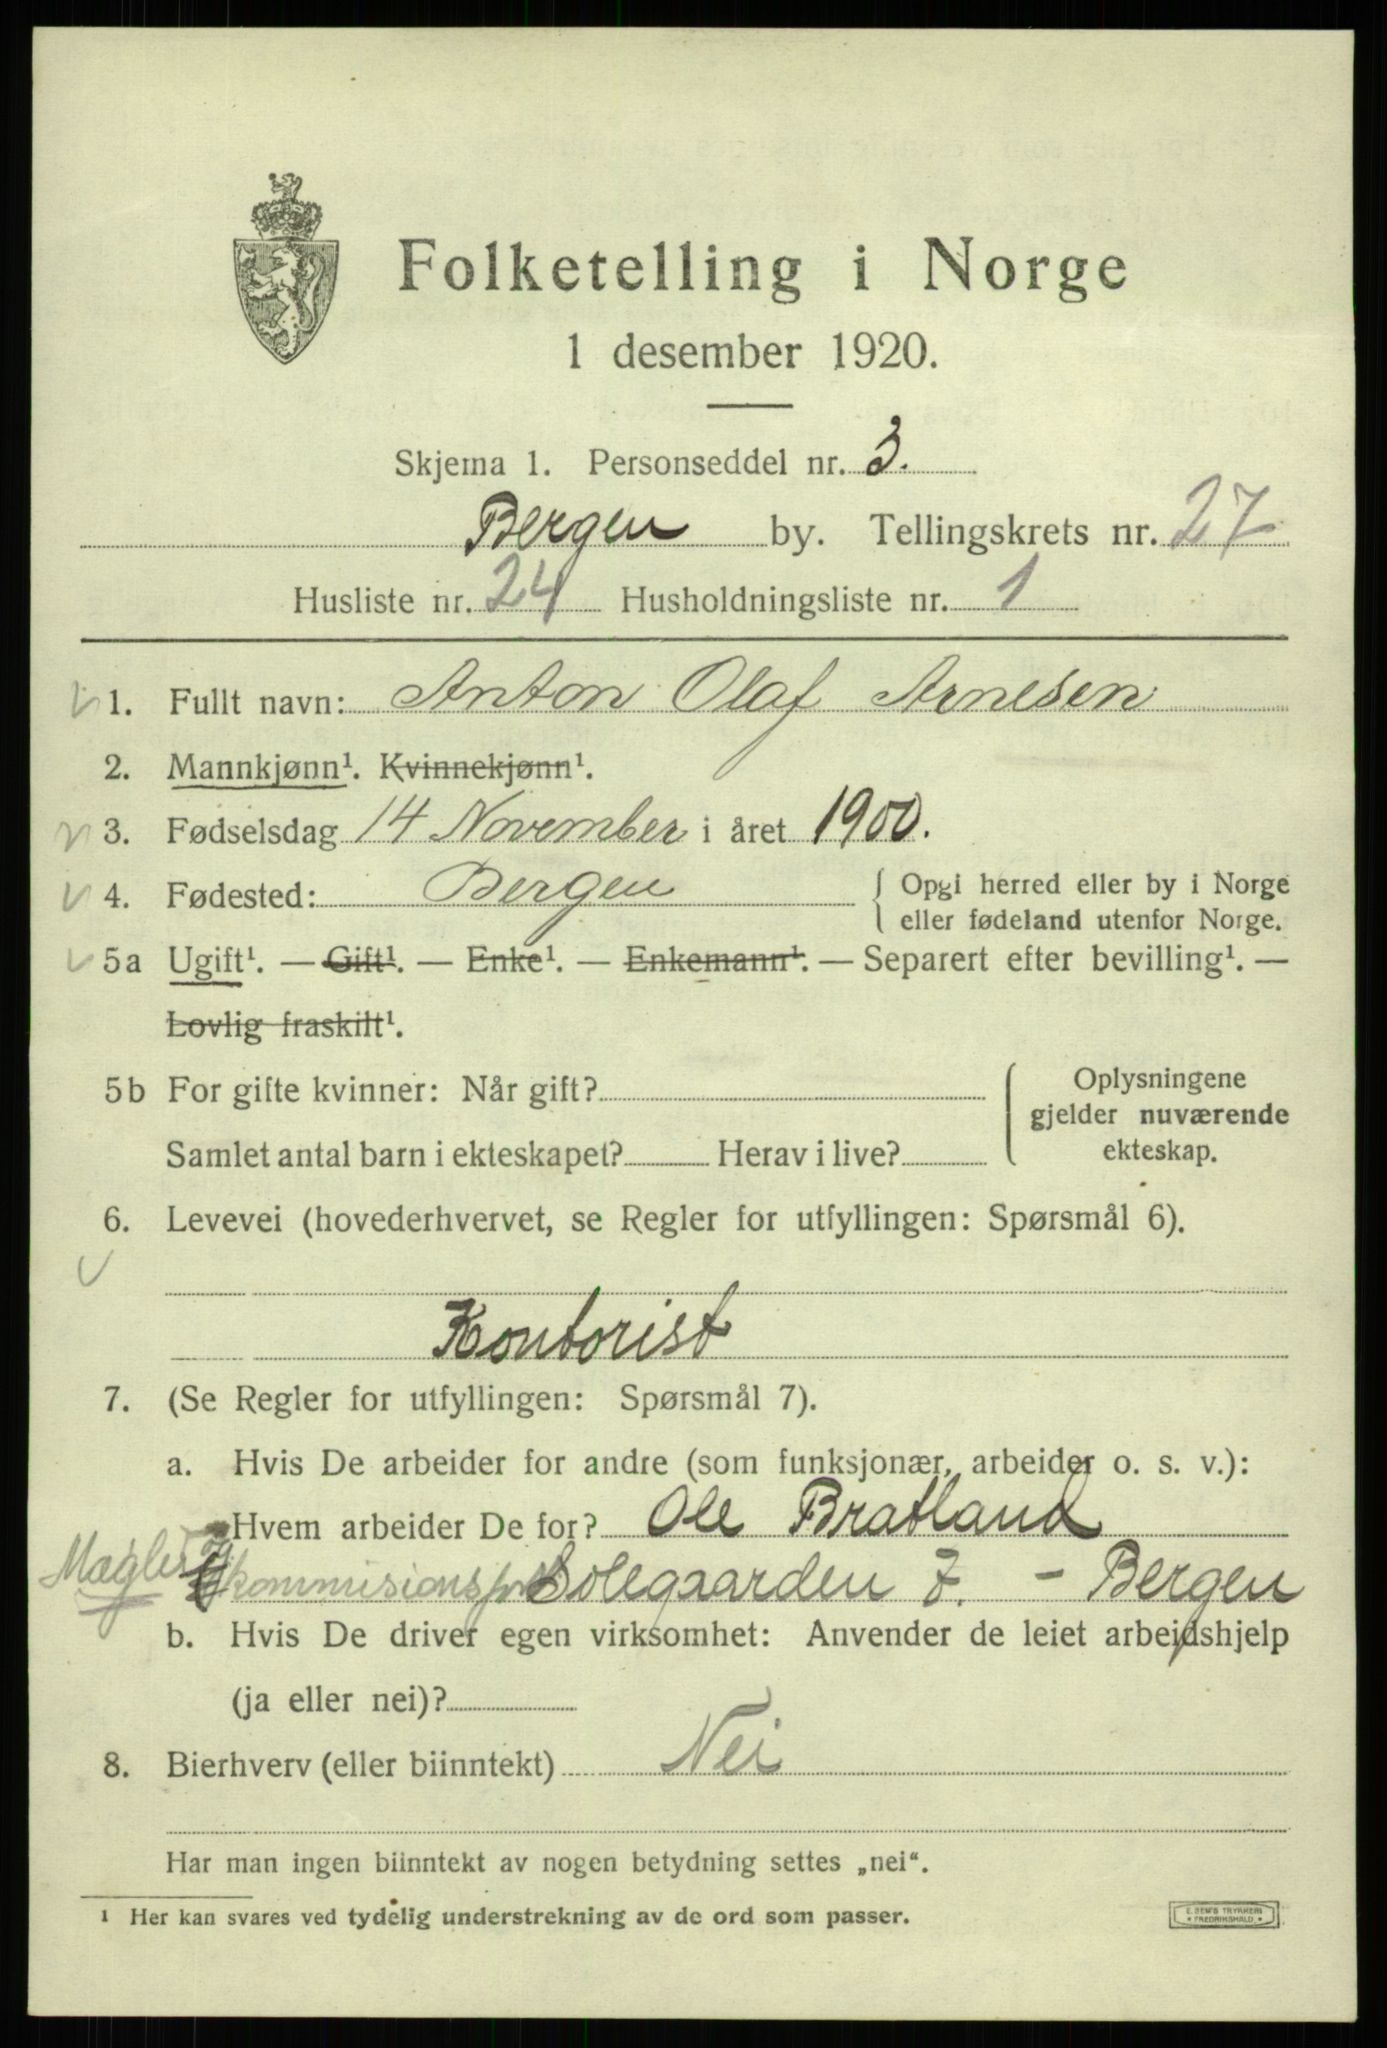 Folketelling i Norge
1 desember 1920.
Skjema 1. Personseddel nr. 3.
Bergen by. Tellingskrets nr. 27
Husliste nr. 24 Husholdningsliste nr. 1
1. Fullt navn: Anton Olaf Arnesen
2. Mannkjønn¹. Kvinnekjønn¹.
3. Fødselsdag 14 November i året 1900.
4. Fødested: Bergen { Opgi herred eller by i Norge
eller fødeland utenfor Norge.
5a Ugift¹. — Gift¹. — Enke¹. — Enkemann¹. — Separert efter bevilling¹. —
Lovlig fraskilt¹.
5b For gifte kvinner: Når gift? { Oplysningene
gjelder nuværende
Samlet antal barn i ekteskapet? Herav i live? ekteskap.
6. Levevei (hovederhvervet, se Regler for utfyllingen: Spørsmål 6).
Kontorist
7. (Se Regler for utfyllingen: Spørsmål 7).
a. Hvis De arbeider for andre (som funksjonær, arbeider o. s. v.):
Hvem arbeider De for? Ole Bratland
Solegaarden 7. - Bergen
b. Hvis De driver egen virksomhet: Anvender de leiet arbeidshjelp
(ja eller nei)?
8. Bierhverv (eller biinntekt) Nei
Har man ingen biinntekt av nogen betydning settes „nei“.
¹ Her kan svares ved tydelig understrekning av de ord som passer.
E. SEM'S TRYKKERI
* FREDRIKSHALD. *